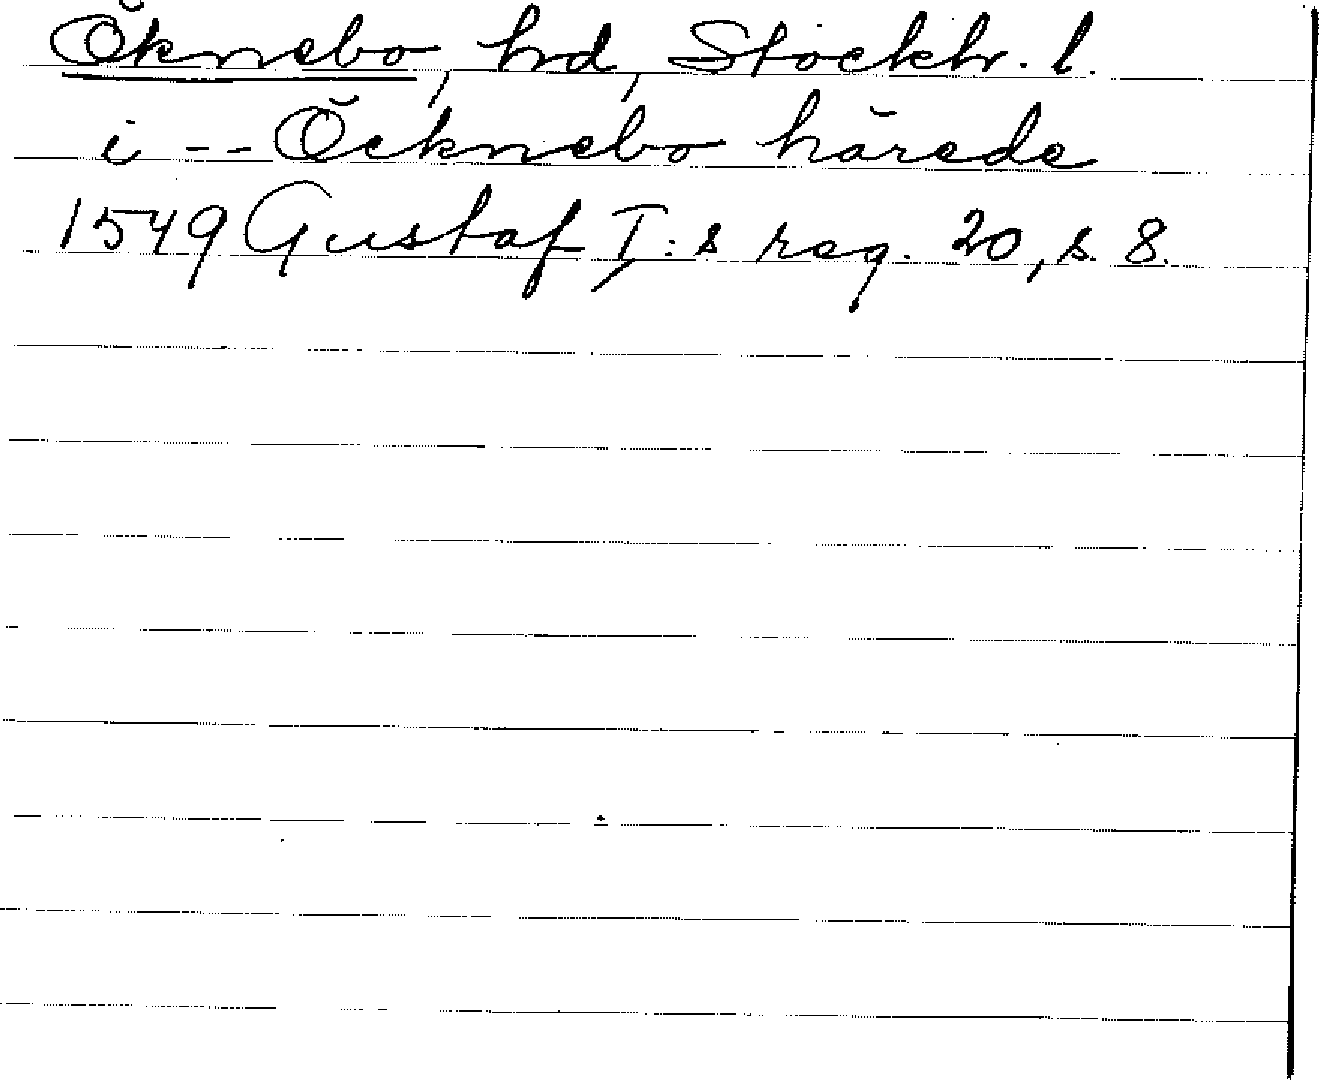 Öknebo, hd, Stockh. l.
i -- Öcknebo härede
1549 Gustaf I:s reg. 20, s. 8.